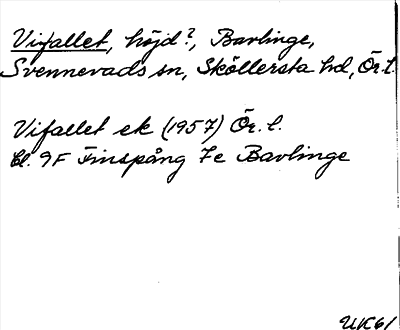 Vifallet, höjd?, Bavlinge,
Svennevads sn, Sköllersta hd, Ör.l.
Vifallet ek (1957) Ör.l.
bl. 9F Finspång 7e Bavlinge
UK61